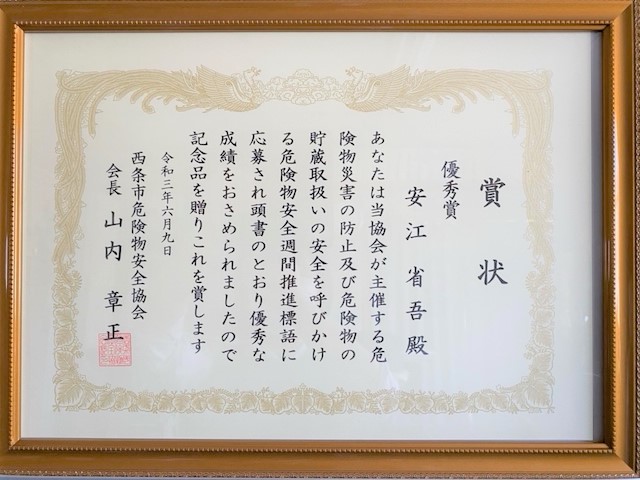 賞状
優秀賞
安江省吾殿
あなたは当協会が主催する危
険物災害の防止及び危険物の
貯蔵取扱いの安全を呼びかけ
る危険物安全週間推進標語に
応募され頭書のとおり優秀な
成績をおさめられましたので
記念品を贈りこれを賞します
令和三年六月九日
西条市危険物安全協会
会長 山内章正